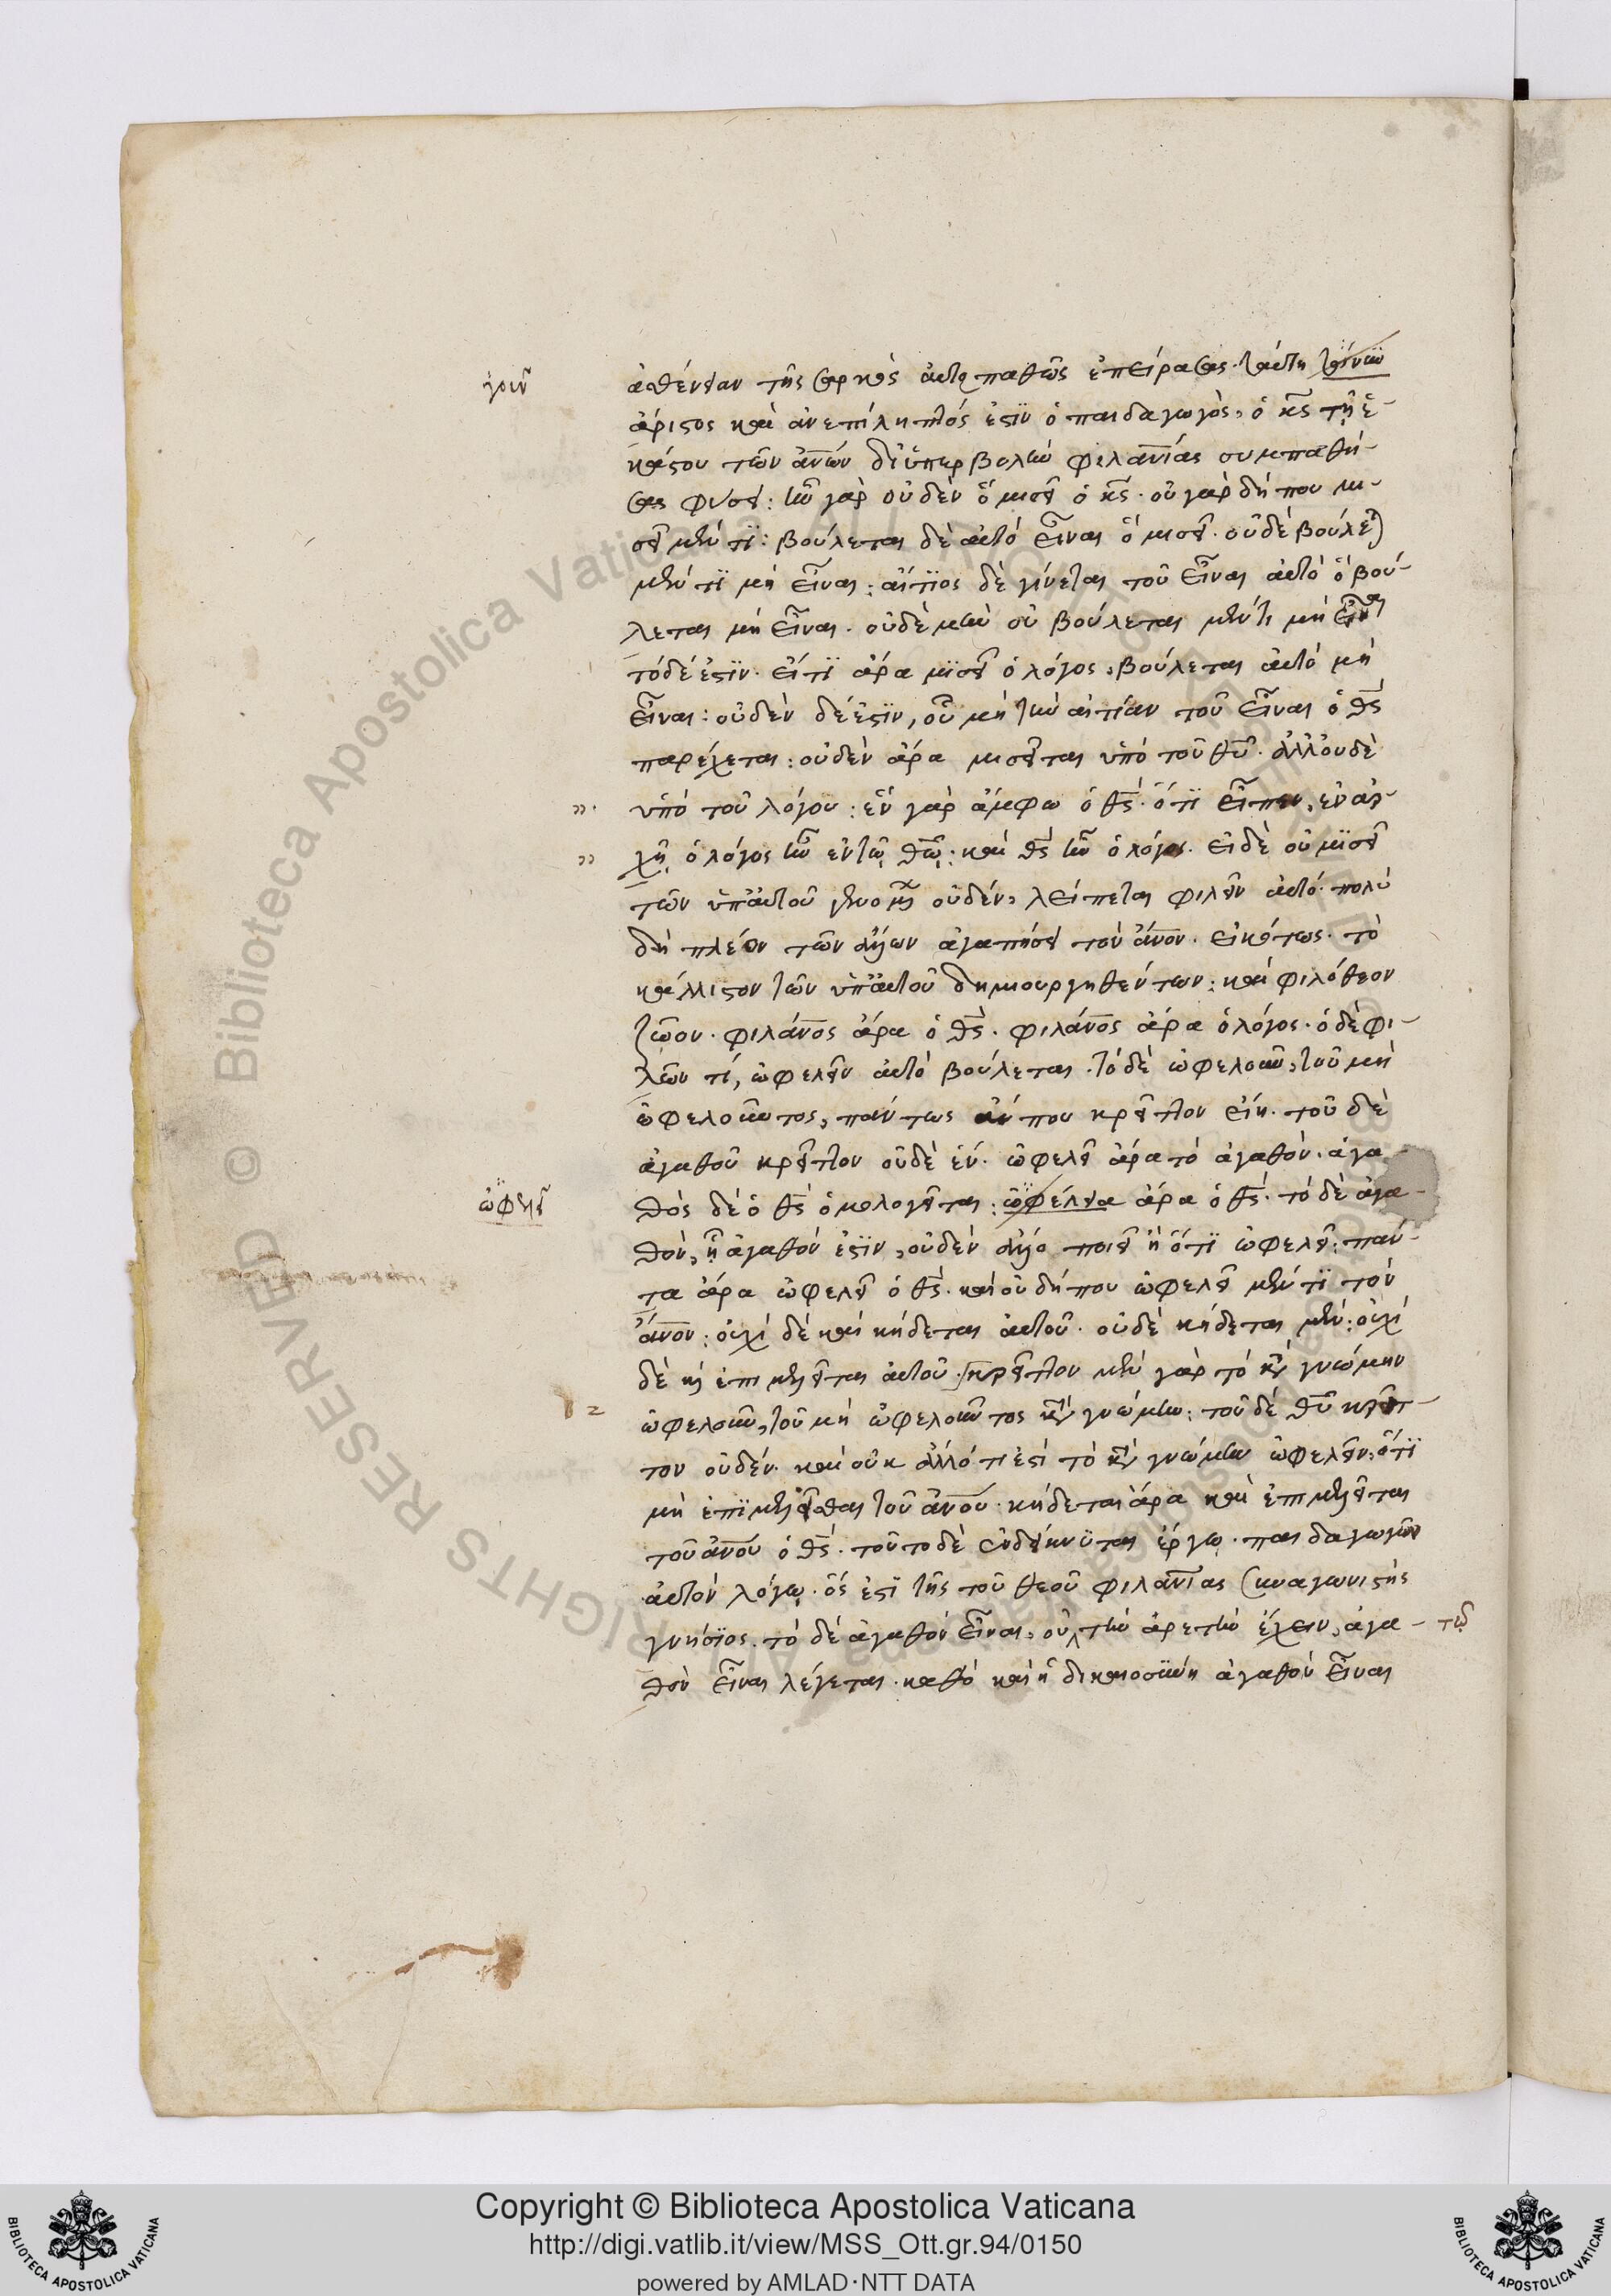 γοῦν
ἀσθένειαν τῆς σαρκὸς αὐτοπαθῶς ἐπείρασεν. ταύτη τοίνυν
ἄριστος καὶ ἀνεπίληπτός ἐστϊν ὁ παιδαγωγὸς, ὁ κς τῇ ἑ-
κάστου τῶν ἀνων δι' ὑπερβολὴν φιλανιας συμπαθή-
σας φύσει: ἦν γὰρ οὐδὲν ὃ μισεῖ ὁ κς. οὐ γὰρ δή που μι-
σεῖ μέν τϊ: βούλεται δὲ αὐτὸ εἶναι ὃ μισεῖ. οὐδὲ βούλεται
μέν τϊ μὴ εἶναι: αἴτϊος δὲ γίνεται τοῦ εἶναι αὐτὸ ὃ βού-
λεται μὴ εἶναι. οὐδὲ μὴν οὐ βούλεται μέν τι μὴ εἶναι
τὸ δέ ἐστϊν. εἴ τϊ ἄρα μϊσεῖ ὁ λόγος, βούλεται αὐτὸ μὴ
εἶναι: οὐδὲν δέ ἐστϊν, οὗ μὴ τὴν αἰτίαν τοῦ εἶναι ὁ θς
παρέχεται: οὐδὲν ἄρα μισεῖται ὑπὸ τοῦ θυ. ἀλλ' οὐδὲ
ὑπὸ τοῦ λόγου: ἓν γὰρ ἄμφω ὁ θς. ὅτϊ εἶπεν, ἐν ἀρ-
χῇ ὁ λόγος ἦν ἐν τῷ θω: καὶ θς ἦν ὁ λόγος. εἰ δὲ οὐ μϊσεῖ
τῶν ὑπ' αὐτοῦ γενομένων οὐδέν, λείπεται φιλεῖν αὐτό. πολὺ
δὴ πλέον τῶν ἄλλων ἀγαπήσει τὸν ἀνον. εἰκότως. τὸ
κάλλιστον τῶν ὑπ' αὐτοῦ δημιουργηθέντων: καὶ φιλόθεον
ζῶον. φιλάνος ἄρα ὁ θς. φιλάνος ἄρα ὁ λόγος. ὁ δὲ φι-
λῶν τί, ὠφελεῖν αὐτὸ βούλεται. τὸ δὲ ὠφελοῦν, τοῦ μὴ
ὠφελοῦντος, πάντως ἄν που κρεῖττον εἴη. τοῦ δὲ
ἀγαθοῦ κρεῖττον οὐδὲ ἕν. ὠφελεῖ ἄρα τὸ ἀγαθόν. ἀγα-
ὠφελεῖ
θὸς δὲ ὁ θς ὁμολογεῖται: ὠφέλεια ἄρα ὁ θς. τὸ δὲ ἀγα-
θὸν, ᾗ ἀγαθόν ἐστϊν, οὐδὲν ἄλλο ποιεῖ ἢ ὅτϊ ὠφελεῖ: πάν-
τα ἄρα ὠφελεῖ ὁ θς. καὶ οὐ δήπου ὠφελεῖ μέν τϊ τὸν
ἄνον: οὐχὶ δὲ καὶ κήδεται αὐτοῦ. οὐδὲ κήδεται μὲν: οὐχὶ
δὲ κὶ ἐπιμελεῖται αὐτοῦ. κρεῖττον μὲν γὰρ τὸ κατὰ γνώμην
ὠφελοῦν, τοῦ μὴ ὠφελοῦντος κατὰ γνώμην: τοῦ δὲ θυ κρεῖτ-
τον οὐδέν. καὶ οὐκ ἄλλό τι ἐστὶ τὸ κατὰ γνώμην ὠφελεῖν, ὅτϊ
μὴ ἐπϊμελεῖσθαι τοῦ ἀνου. κήδεται ἄρα καὶ ἐπιμελεῖται
τοῦ ἀνου ὁ θς. τοῦτο δὲ ἐνδείκνϋται ἔργῳ. παιδαγωγῶν
αὐτὸν λόγῳ. ὅς ἐστϊ τῆς τοῦ θεοῦ φιλανιας συναγωνιστὴς
γνήσϊος. τὸ δὲ ἀγαθὸν εἶναι, οὐ τὴν ἀρετὴν ἔχειν, ἀγα- τῷ
θὸν εἶναι λέγεται. καθὸ καὶ ἡ δικαιοσϋνη ἀγαθὸν εἶναι
Copyright © Biblioteca Apostolica Vaticana
http://digi.vatlib.it/view/MSS_Ott.gr.94/0150
powered by AMLAD·NTT DATA